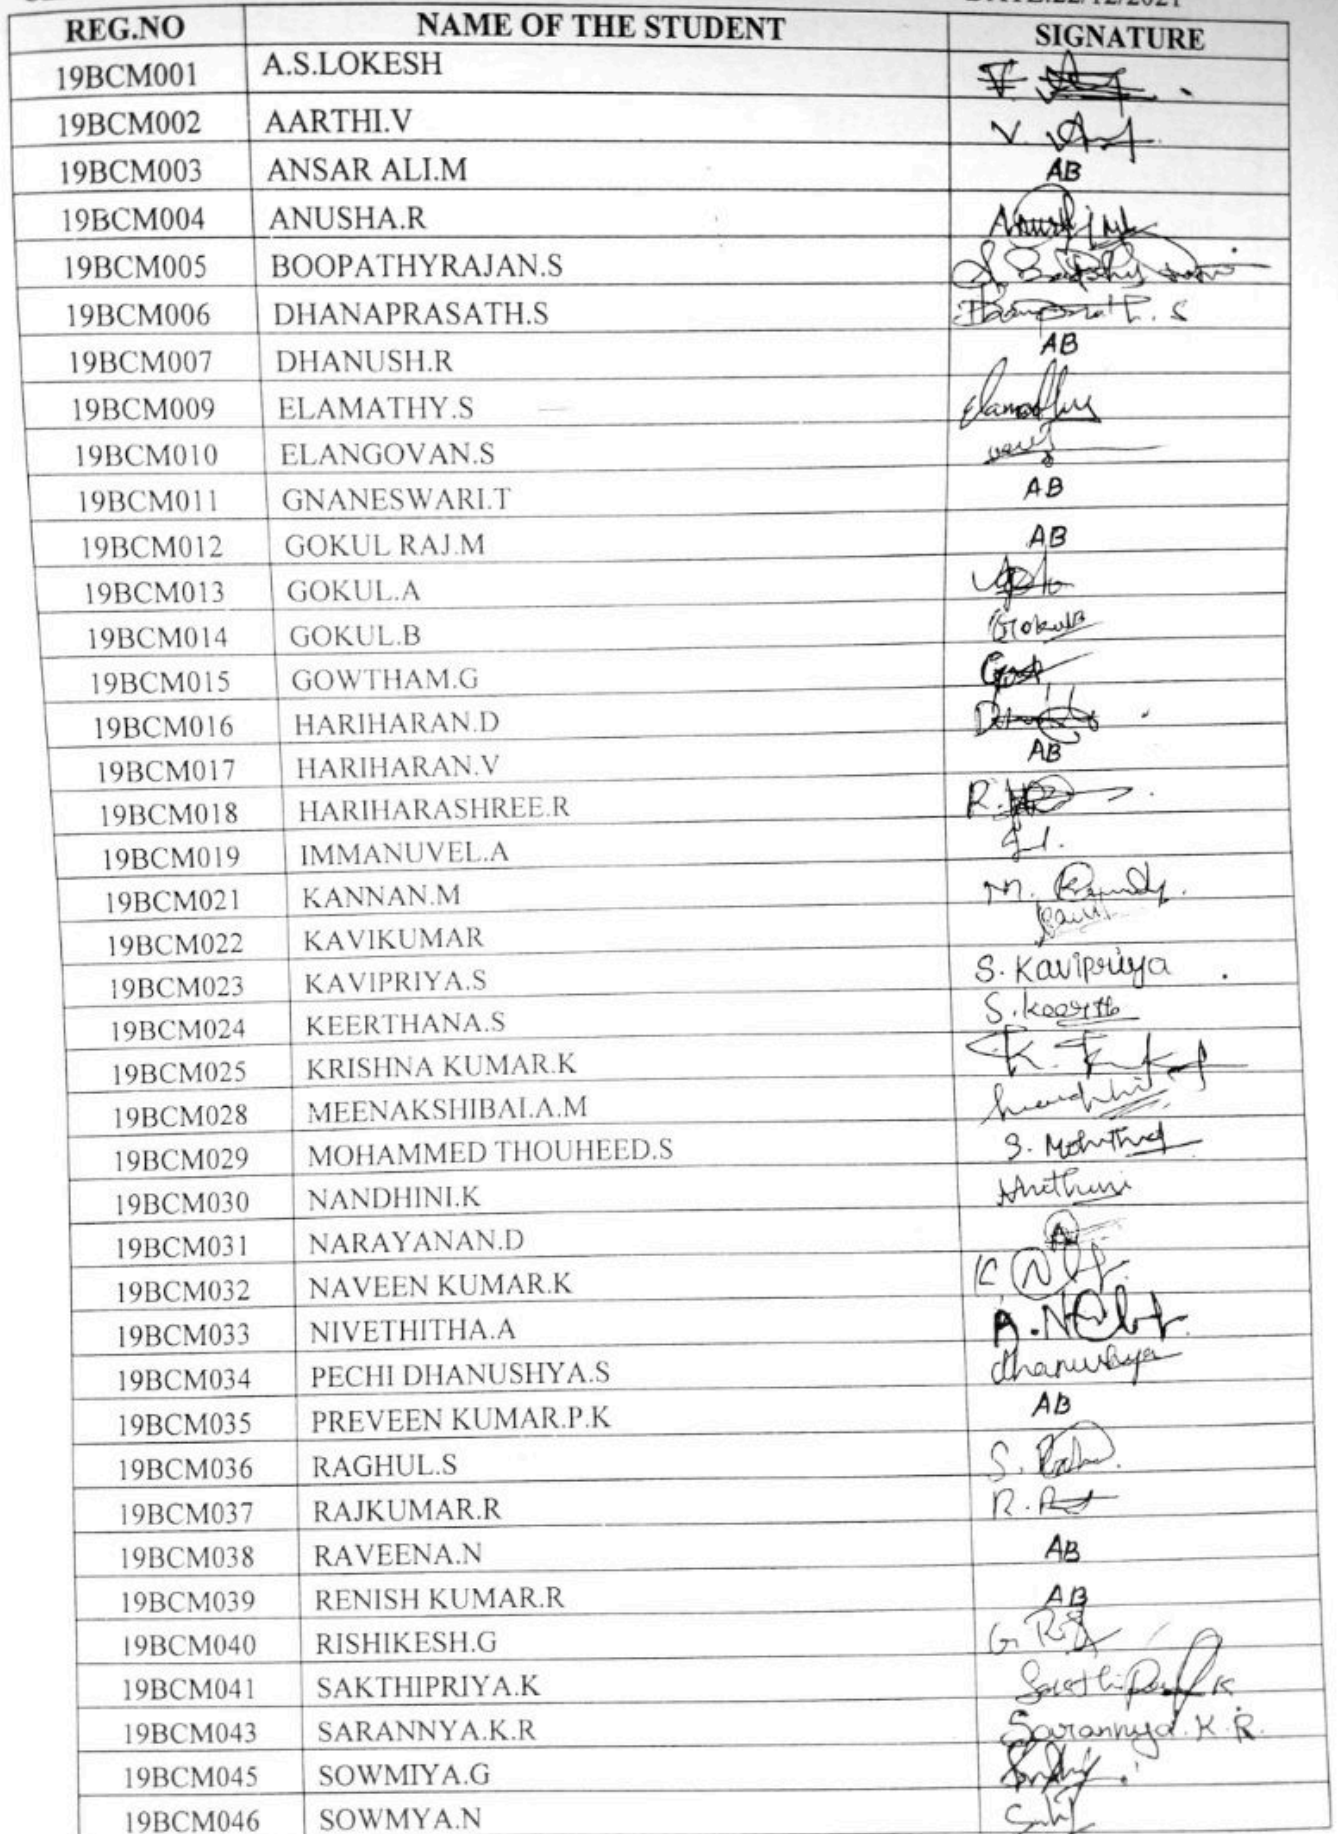 22/12/2021
REG.NO NAME OF THE STUDENT SIGNATURE
19BCM001 A.S.LOKESH
19BCM002 AARTHI.V V.
19BCM003 ANSAR ALI.M AB
19BCM004 ANUSHA.R
19BCM005 BOOPATHYRAJAN.S
19BCM006 DHANAPRASATH.S
19BCM007 DHANUSH.R AB
19BCM009 ELAMATHY.S
19BCM010 ELANGOVAN.S
19BCM011 GNANESWARI.T AB
19BCM012 GOKUL RAJ.M AB
19BCM013 GOKUL.A
19BCM014 GOKUL.B GokulB
19BCM015 GOWTHAM.G
19BCM016 HARIHARAN.D
19BCM017 HARIHARAN.V AB
19BCM018 HARIHARASHREE.R R.
19BCM019 IMMANUVEL.A
19BCM021 KANNAN.M M.
19BCM022 KAVIKUMAR
19BCM023 KAVIPRIYA.S S. Kavipriya
19BCM024 KEERTHANA.S S.
19BCM025 KRISHNA KUMAR.K K.
19BCM028 MEENAKSHIBAI.A.M
19BCM029 MOHAMMED THOUHEED.S S.
19BCM030 NANDHINI.K
19BCM031 NARAYANAN.D
19BCM032 NAVEEN KUMAR.K K
19BCM033 NIVETHITHA.A A.
19BCM034 PECHI DHANUSHYA.S dhanushya
19BCM035 PREVEEN KUMAR.P.K AB
19BCM036 RAGHUL.S S.
19BCM037 RAJKUMAR.R R.
19BCM038 RAVEENA.N AB
19BCM039 RENISH KUMAR.R AB
19BCM040 RISHIKESH.G G
19BCM041 SAKTHIPRIYA.K
19BCM043 SARANNYA.K.R Sarannya.K.R.
19BCM045 SOWMIYA.G
19BCM046 SOWMYA.N